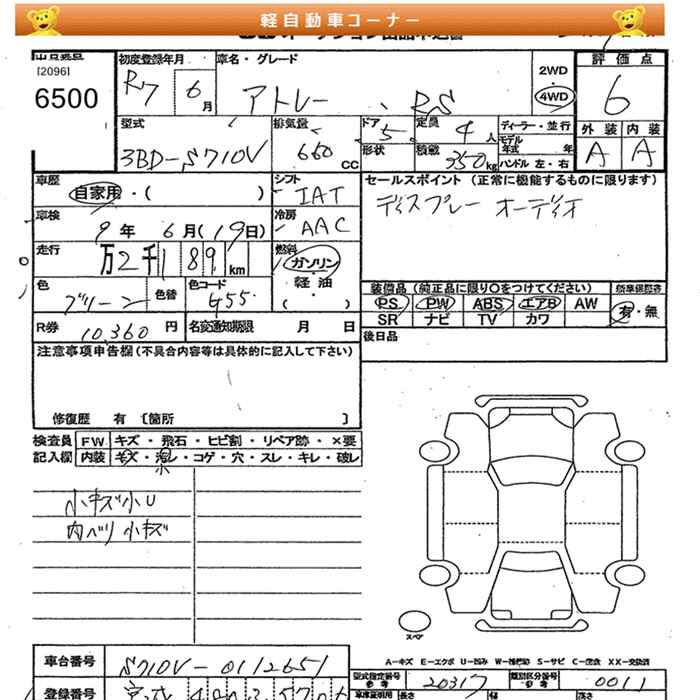 軽自動車コーナー
[2096]
6500
初度登録年月
R7 6月
車名・グレード
アトレー RS
2WD
4WD
評価点
6
外装 内装
A A
型式
3BD-S710V
排気量
660 CC
ドア 5
形状
定員 4人
積載 350kg
ディーラー・並行
モデル年式 年
ハンドル 左・右
車歴
自家用・( )
シフト
IAT
セールスポイント (正常に機能するものに限ります)
ディスプレー オーディオ
車検
9年 6月(19日)
冷房
AAC
走行
万2千189km
燃料
ガソリン
軽油
( )
色
グリーン
色替
色コード
G55
装備品 (純正品に限り〇をつけてください)
PS PW ABS エアB AW
SR ナビ TV カワ
有・無
R券
10,360円
名変通知期限 月 日
後日品
注意事項申告欄(不具合内容等は具体的に記入して下さい)
修復歴 有 〔箇所 〕
検査員 FW キズ・飛石・ヒビ割・リペア跡・×要
記入欄 内装 キズ・汚レ・コゲ・穴・スレ・キレ・破レ
小キズ小U
内ヘリ小キズ
スペア
A-キズ E-エクボ U-凹ミ W-補修跡 S-サビ C-腐食 XX-交換済
車台番号
S710V-0112651
型式指定番号
参考
20317
類別区分番号
参考
0011
登録番号